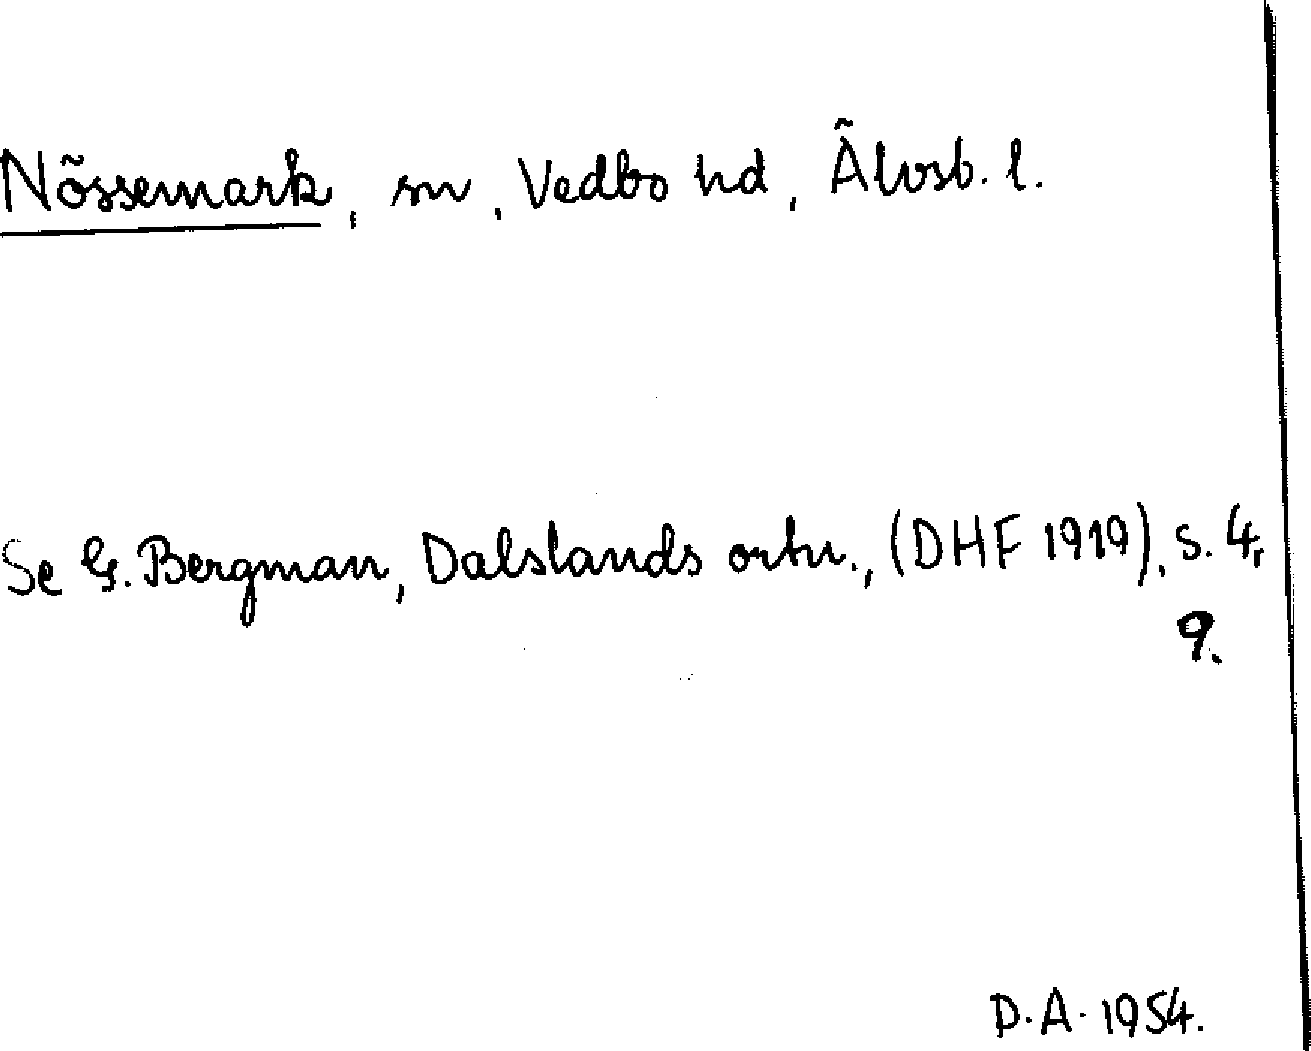 Nössemark, sn, Vedbo hd, Älvsb. l.
Se G. Bergman, Dalslands ortn., (DHF 1919), s. 4,
9.
D.A. 1954.